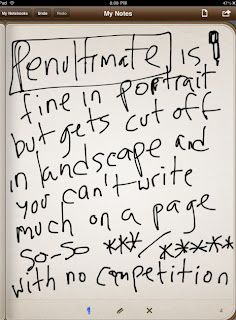 iPad 8:08 PM 47%
My Notebooks Undo Redo My Notes
Penultimate is
fine in portrait
but gets cut off
in landscape and
you can't write
much on a page
so-so ***/*****
with no competition
4